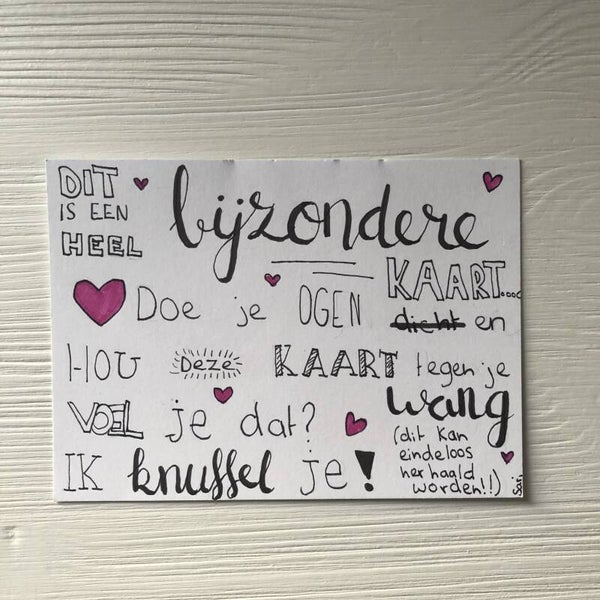 DIT
IS EEN
HEEL
bijzondere
KAART...
Doe je OGEN dicht en
HOU DEZE KAART tegen je
wang
VOEL je dat?
(dit kan
eindeloos
herhaald
worden!!)
IK knuffel je!